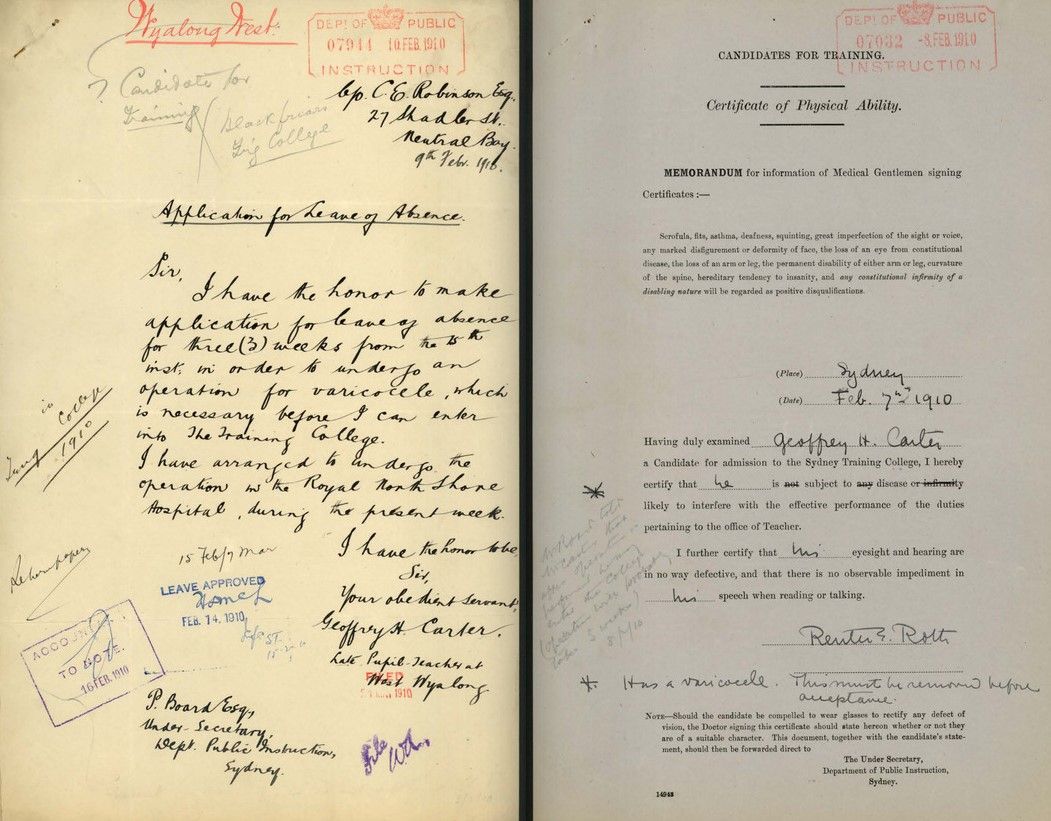 Wyalong West.
DEPT OF PUBLIC
07944 10.FEB.1910
INSTRUCTION
? Candidate for
Training
Blackfriars
Trg College
c/o. C. E. Robinson Esq.
27 Shadler St.
Neutral Bay.
9th Febr. 1910.
Application for Leave of Absence.
Sir,
I have the honor to make
application for leave of absence
for three (3) weeks from the 15th
inst. in order to undergo an
operation for varicocele, which
is necessary before I can enter
into The Training College.
I have arranged to undergo the
operation in the Royal North Shore
Hospital, during the present week.
I have the honor to be
Sir,
Your obedient servant,
Geoffrey H. Carter.
Late Pupil-Teacher at
West Wyalong
in
College
1910
15 Feb/7 Mar
LEAVE APPROVED
FEB. 14, 1910
ACCOUNT
TO NOTE.
16 FEB 1910
FILED
1910
File
P. Board Esq,
Under-Secretary,
Dept. Public Instruction,
Sydney.
DEPT OF PUBLIC
07032 -8.FEB.1910
INSTRUCTION
CANDIDATES FOR TRAINING.
Certificate of Physical Ability.
MEMORANDUM for information of Medical Gentlemen signing
Certificates :—
Scrofula, fits, asthma, deafness, squinting, great imperfection of the sight or voice,
any marked disfigurement or deformity of face, the loss of an eye from constitutional
disease, the loss of an arm or leg, the permanent disability of either arm or leg, curvature
of the spine, hereditary tendency to insanity, and any constitutional infirmity of a
disabling nature will be regarded as positive disqualifications.
(Place) Sydney
(Date) Feb. 7th 1910
Having duly examined Geoffrey H. Carter
a Candidate for admission to the Sydney Training College, I hereby
certify that he is not subject to any disease or infirmity
likely to interfere with the effective performance of the duties
pertaining to the office of Teacher.
I further certify that his eyesight and hearing are
in no way defective, and that there is no observable impediment in
his speech when reading or talking.
Reuter E. Roth
* Has a varicocele. This must be removed before
acceptance.
NOTE—Should the candidate be compelled to wear glasses to rectify any defect of
vision, the Doctor signing this certificate should state hereon whether or not they
are of a suitable character. This document, together with the candidate's state-
ment, should then be forwarded direct to
The Under Secretary,
Department of Public Instruction,
Sydney.
14948